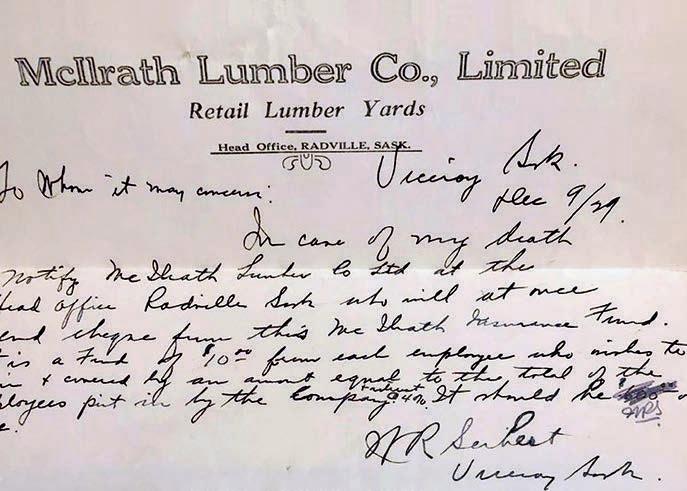 McIlrath Lumber Co., Limited
Retail Lumber Yards
Head Office, RADVILLE, SASK.
To Whom it may concern:
Viceroy Sask.
Dec 9/29.
In case of my death
notify McIlrath Lumber Co Ltd at the
Head Office Radville Sask who will at once
send cheque from this McIlrath Insurance Fund.
It is a Fund of $10.00 from each employee who wishes to
& covered by an amount equal to the total of the
employees put in by the Company & interest @ 4%. It should be
WRS
W R Seibert
Viceroy Sask.